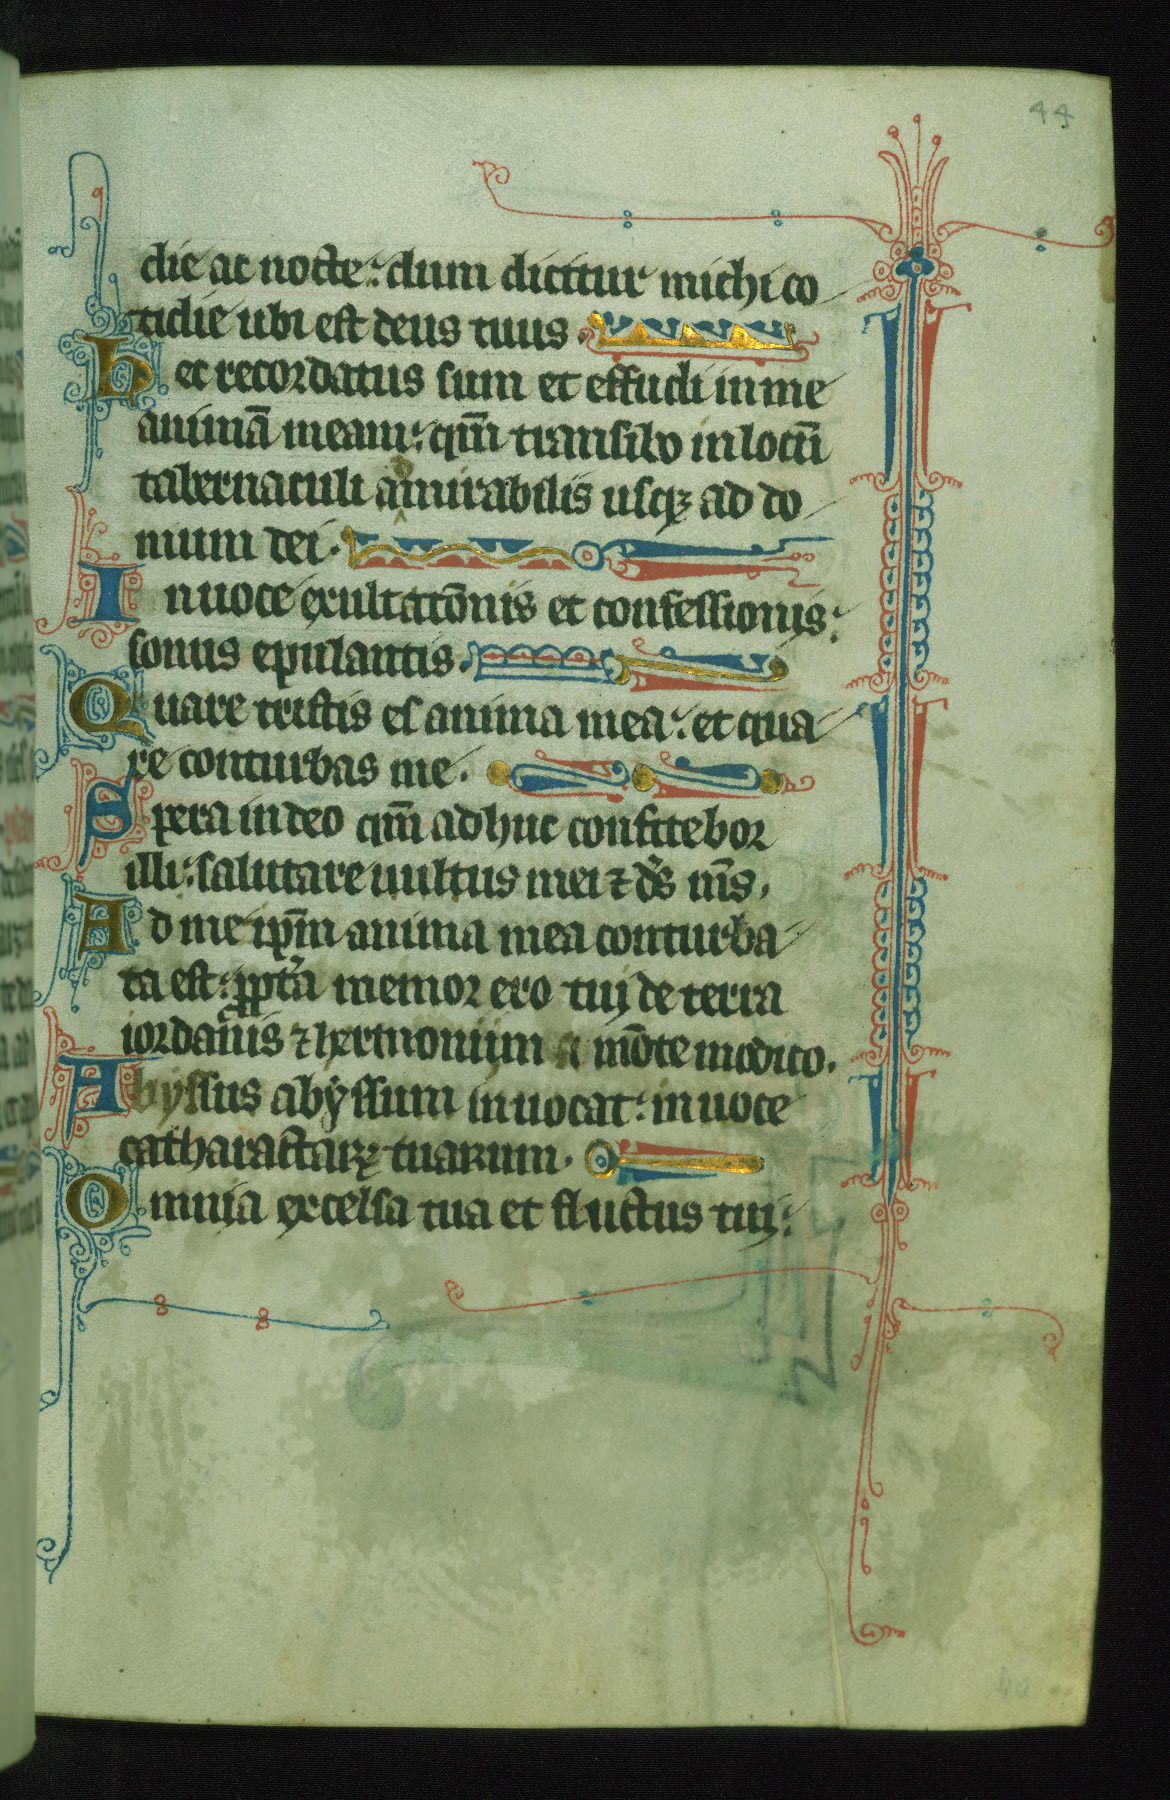 44
die ac nocte: dum dicitur michi co
tidie ubi est deus tuus.
hec recordatus sum et effudi in me
animā meam: qm̄ transibo in locū
tabernaculi amirabilis usqꝫ ad do
mum dei.
In uoce exultatōnis et confessionis:
sonus epulantis.
Quare tristis es anima mea: et qua
re conturbas me.
Spera in deo qm̄ adhuc confitebor
illi: salutare uultus mei ⁊ ds̄ ms̄.
Ad me ip̄m anima mea conturba
ta est: ꝓpt̄a memor ero tui de terra
iordanis ⁊ hermonium a mōte modico.
Abyssus abyssum inuocat: in uoce
catharactarꝝ tuarum.
Omnia excelsa tua et fluctus tui: